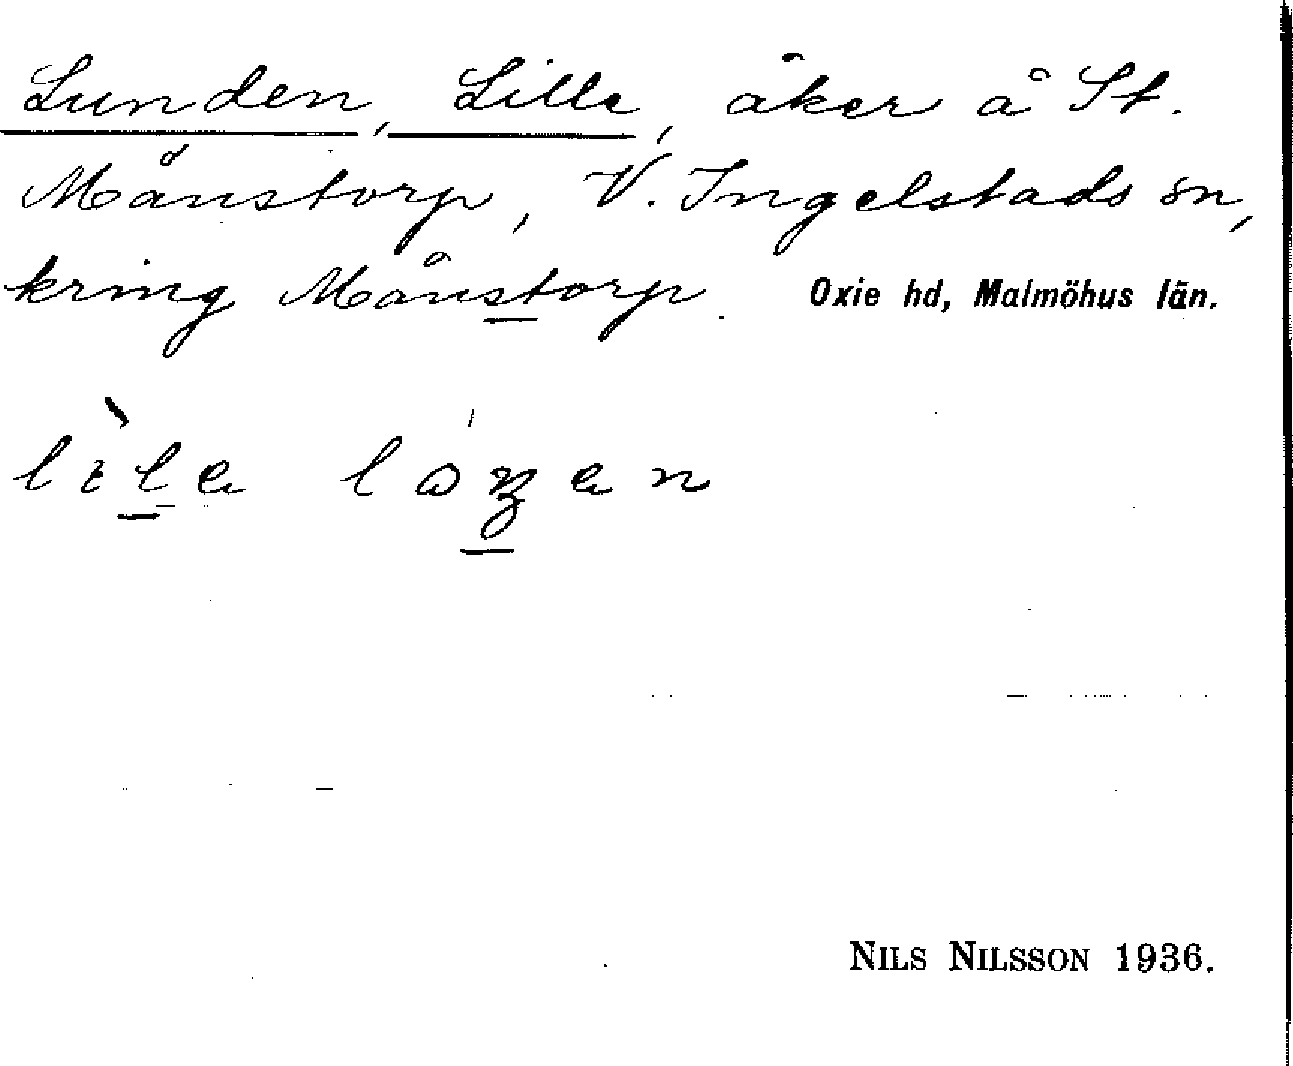 Lunden, Lille, åker å St.
Månstorp, V. Ingelstads sn,
kring Månstorp. Oxie hd, Malmöhus län.
lìla
NILS NILSSON 1936.